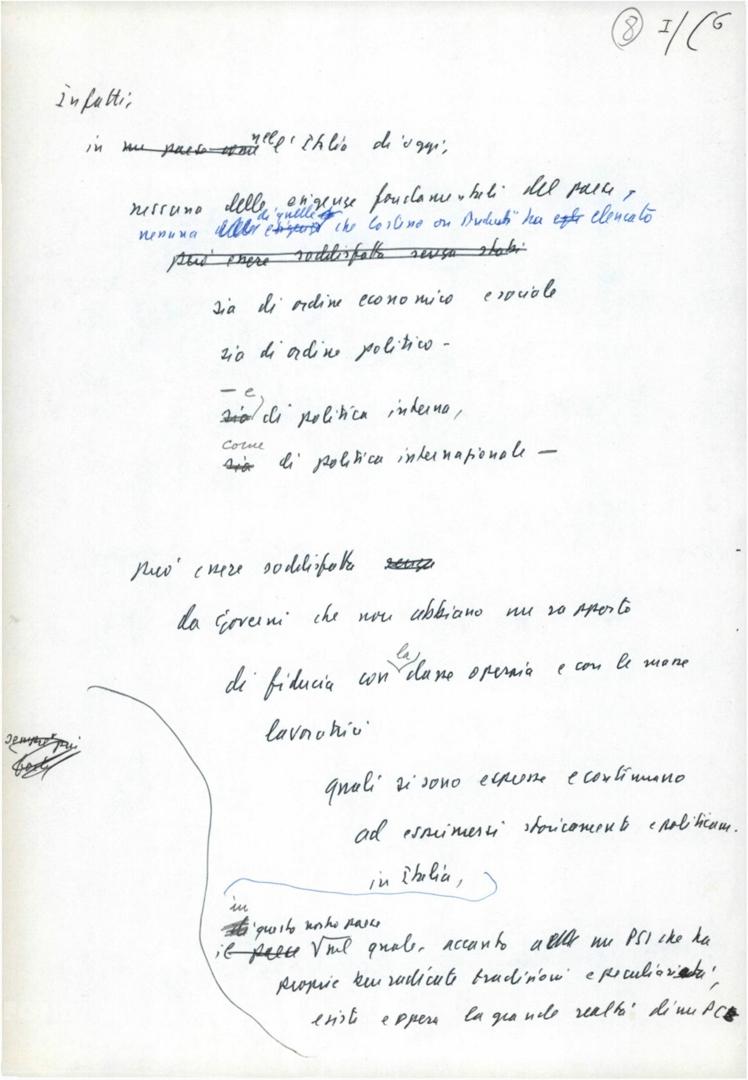 8 I/
Infatti,
in un paese come nell'Italia di oggi,
nessuna delle esigenze fondamentali del paese,
nessuna delle di quelle esigenze che Costino on Andreotti ha egli elencato
può essere soddisfatta senza
sia di ordine economico e sociale
sia di ordine politico -
— e
sia di politica interna,
come
sia di politica internazionale —
può essere soddisfatta senza
da Governi che non abbiano un rapporto
di fiducia con la classe operaia e con le masse
lavoratrici
sempre più
forti
quali si sono espresse e continuano
ad esprimersi storicamente e politicam.
in Italia,
in
di questo nostro paese
il paese nel quale, accanto a un PSI che ha
proprie ben radicate tradizioni e peculiarità,
esiste e opera la grande realtà di un PCI